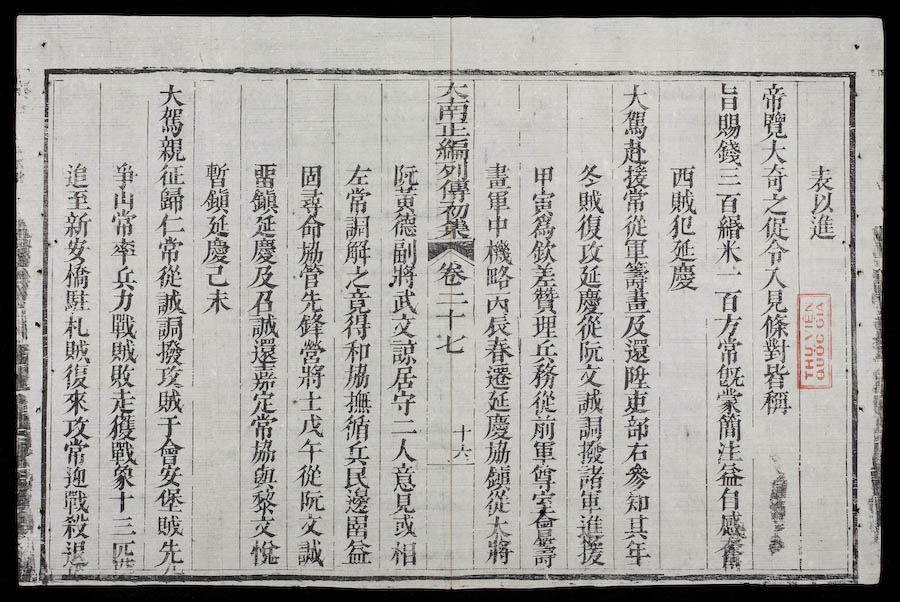 表以進
帝覽大奇之促令入見條對皆稱
旨賜錢三百緡米一百方常旣蒙簡注益自感奮
西賊犯延慶
大駕赴援常從軍籌畫及還陞吏部右參知其年
冬賊復攻延慶從阮文誠調撥諸軍進援
甲寅爲欽差贊理兵務從前軍尊室會籌
畫軍中機略丙辰春遷延慶協鎮從大將
大南正編列傳初集 卷二十七 十六
阮黃德副將武文諒居守二人意見或相
左常調解之竟得和協撫循兵民邊畱益
固尋命協管先鋒營將士戊午從阮文誠
畱鎮延慶及召誠還嘉定常協與黎文悅
暫鎮延慶己未
大駕親征歸仁常從誠調撥攻賊于會安堡賊先
爭山常率兵力戰賊敗走獲戰象十三匹
追至新安橋駐札賊復來攻常迎戰殺退
THƯ VIỆN
QUỐC GIA